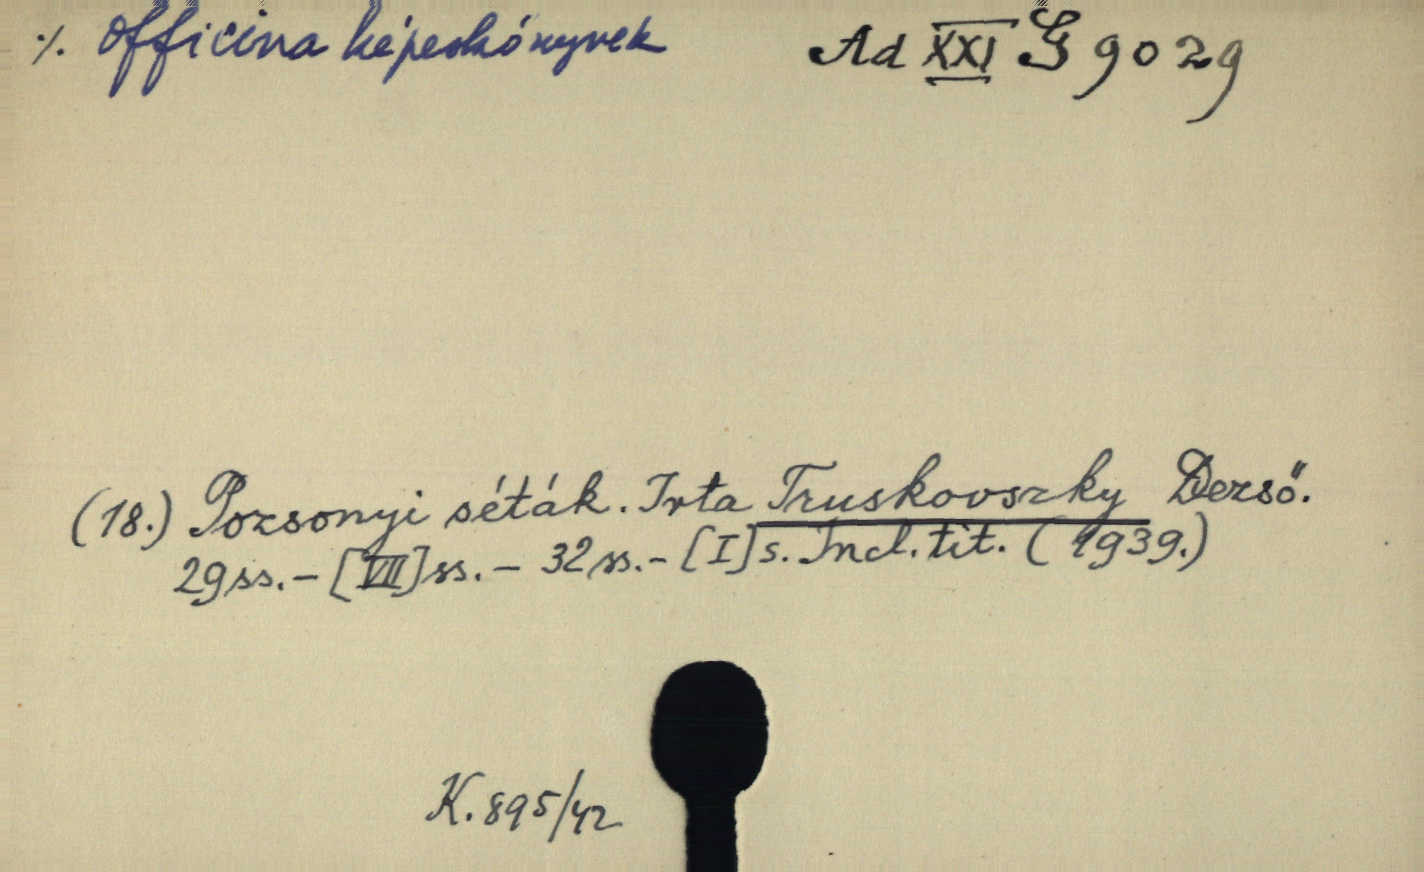 ./. Officina képeskönyvek
Ad XXI G 9029
(18.) Pozsonyi séták. Irta Truskovszky Dezső.
29 ss. – [VII] ss. – 32 ss. – [I] s. Incl. tit. (1939.)
K. 895/42